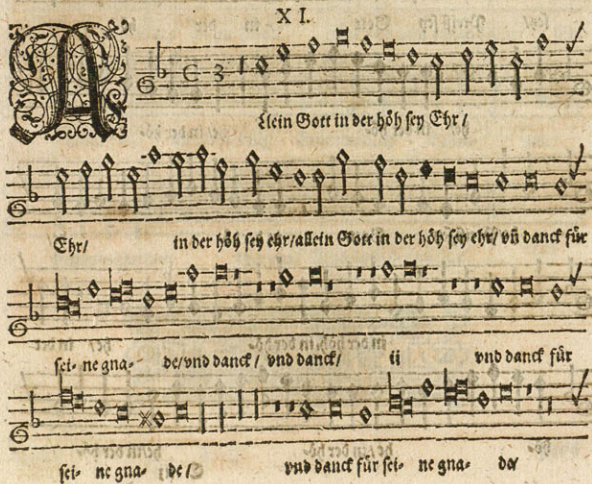 XI.
Allein Gott in der höh sey Ehr /
Ehr/ in der höh sey ehr/allein Gott in der höh sey ehr/ vñ danck für
sei- ne gna- de/vnd danck/ vnd danck/ ii vnd danck für
sei- ne gna- de/ vnd danck für sei- ne gna- de/